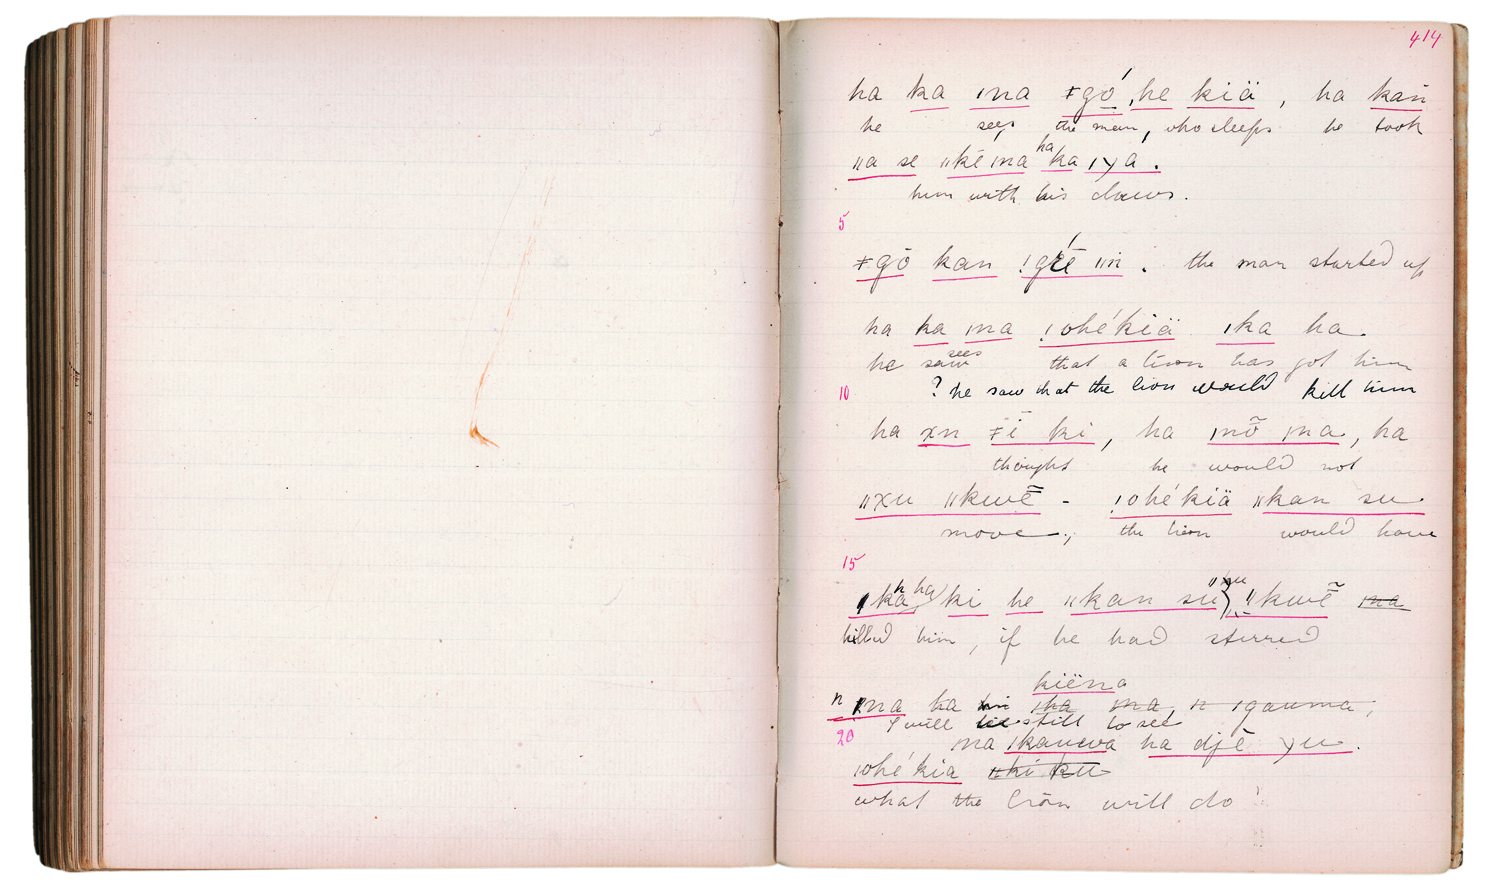 414
ha ka ına ǂgó he kiä, ha kan̄
he sees the man, who sleeps he took
ǁa se ǁkē ına ha ka ıyá.
him with his claws.
5
ǂgō kan !gēē ǁn̄. the man started up
ha ka ına !ohékiä ıka ha
he saw sees that a lion has got him
10 ? he saw that the lion would kill him
ha xn ǂī ki, ha ınō̃ ına, ha
thought he would not
ǁxu ǁkwē̃ - !ohékiä ǁkan su
move, the lion would have
15
ıka n ha ki he ǁkan sü ǁxu ǁkwē̃ ına
killed him, if he had stirred
kiëna
n ına ka ıka ına, n ıgauma;
I will lie still to see
20 na ıkauwa ha djē yu.
ıohékia ǁki ku
what the lion will do